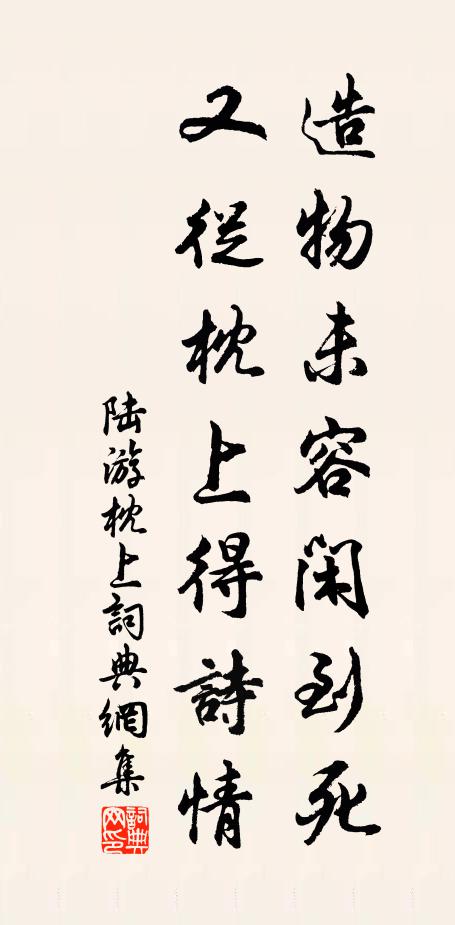 造物未容闲到死
又從枕上得詩情
陆游枕上詞典網集
詞典网印